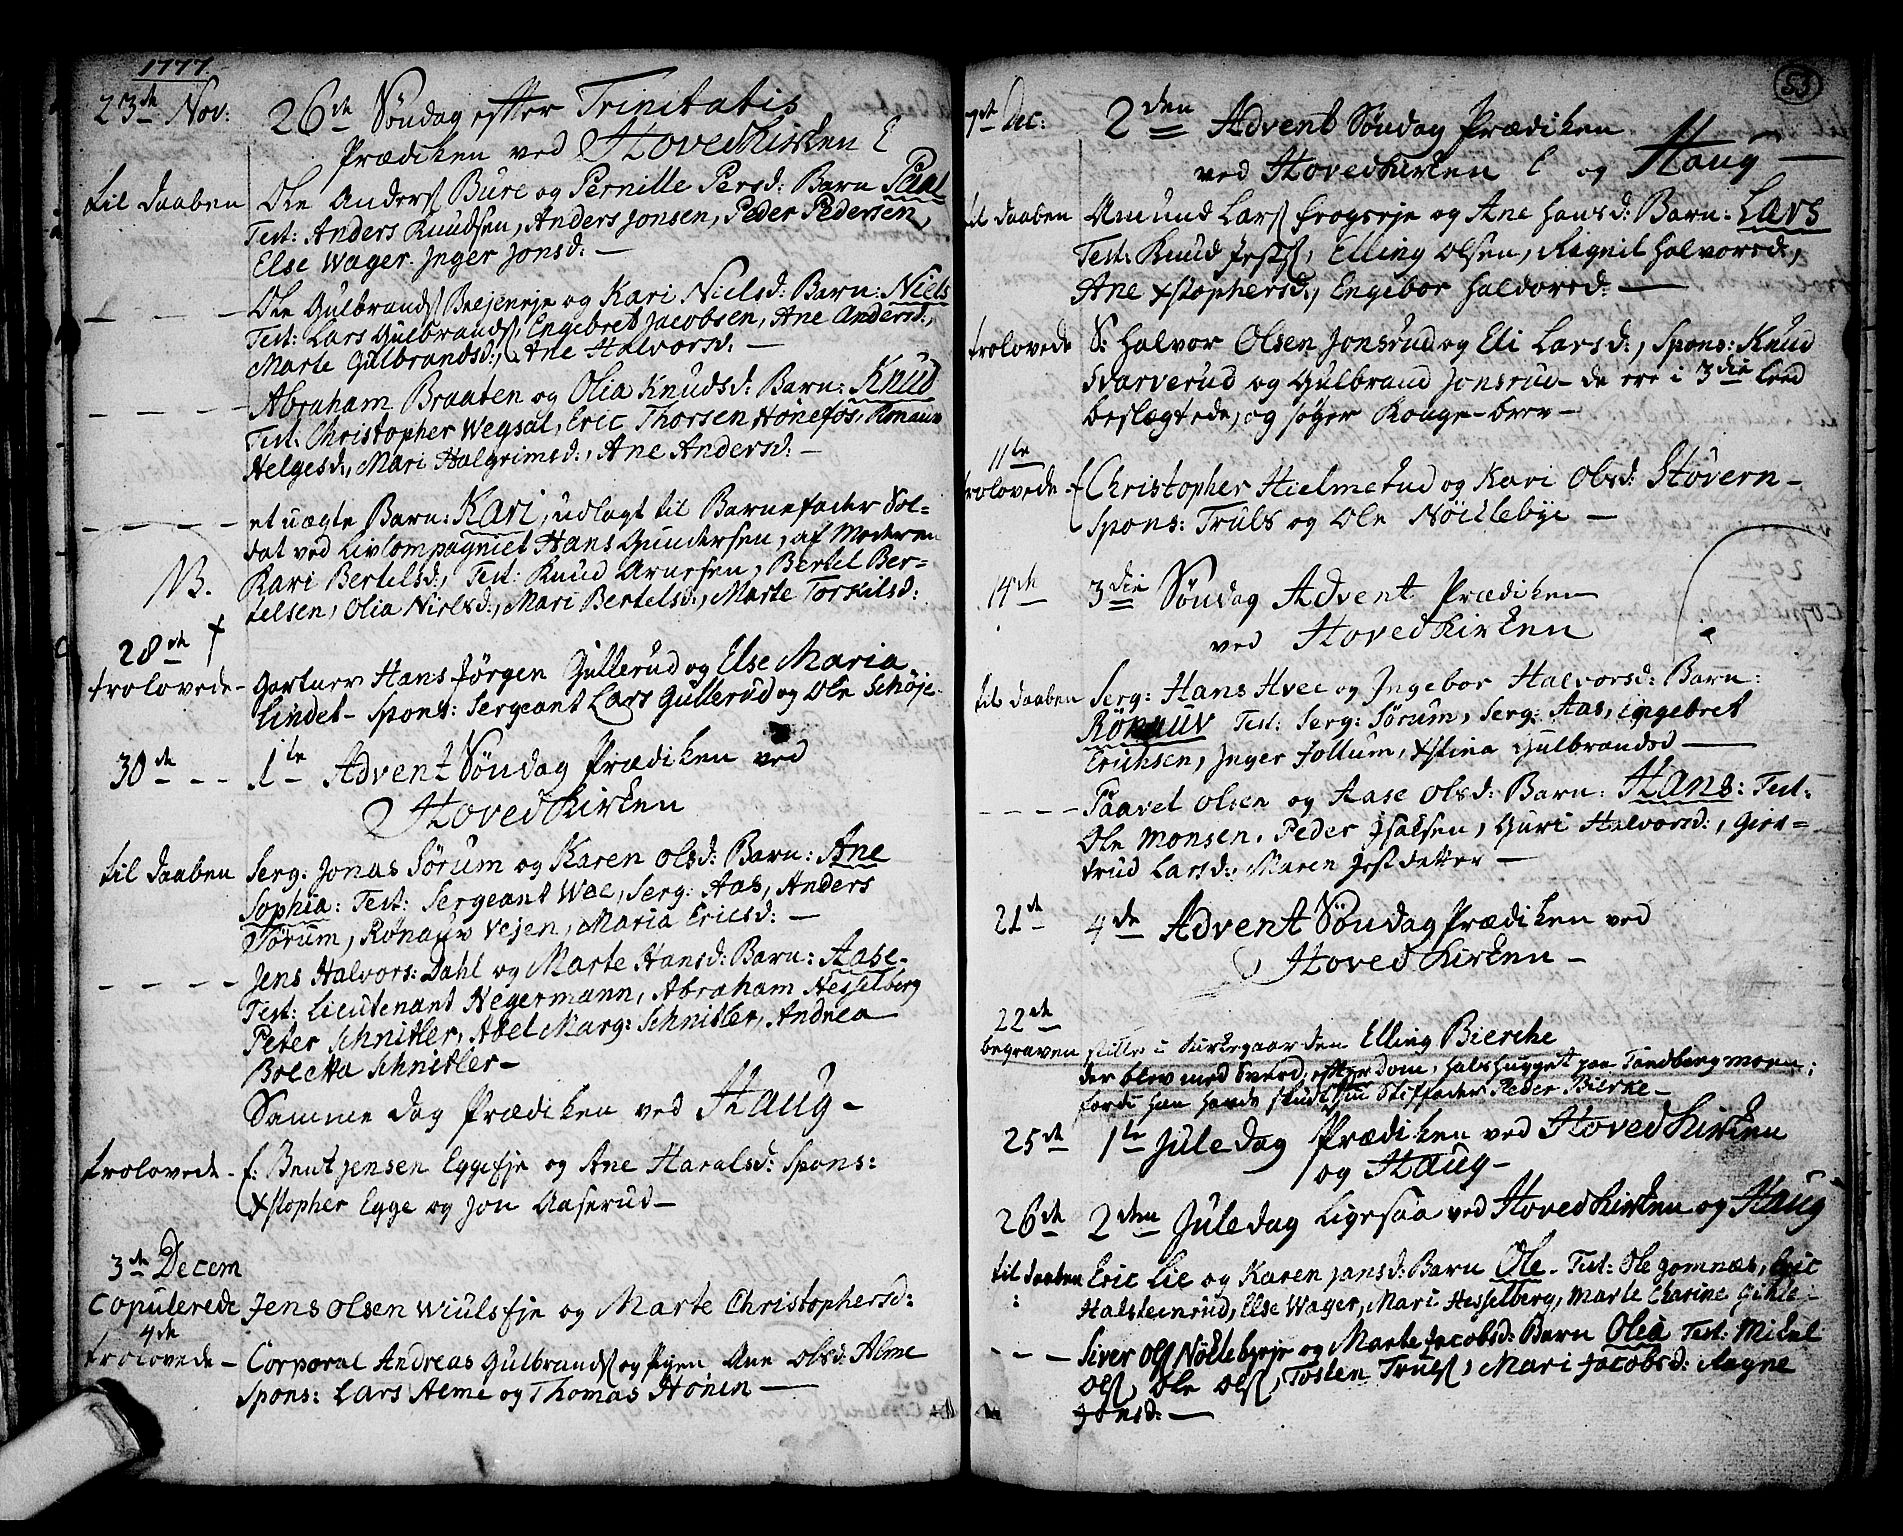 1777.
23de Nov: 26de Søndag efter Trinitatis
Prædiken ved Hoved Kirken
til daaben Ole Anders Bure og Pernille Persd: Barn Paal
Test: Anders Knudsen, Anders Jonsen, Peder Pedersen,
Else Wager. Inger Jonsd: —
— — — Ole Gulbrands og Kari Nielsd: Barn: Niels
Test: Lars Gulbrands, Engebret Jacobsen, Ane Andersd:,
Marte Gulbrandsd:, Ane Halvorsd: —
— — — Abraham Braaten og Olia Knudsd: Barn: Knud
Test: Christopher Wegsal, Eric Thorsen Hønefos,
Helgesd:, Mari Halgrimsd:, Ane Andersd: —
— — — et uægte Barn: Kari, udlagt til Barnefader Sol-
dat ved LivCompagniet Hans Gundersen, af Moderen
NB. Kari Bertelsd:, Test: Knud Arnesen, Bertel Ber-
telsen, Olia Nielsd:, Mari Bertelsd:, Marte Torkilsd:
28de
trolovede – Gartner Hans Jörgen Gullerud og Else Maria
Lindet – Spons: Sergeant Lars Gullerud og Ole Schöje-
30de – – 1te Advent Søndag Prædiken ved
Hoved Kirken
til daaben Serg: Jonas Sörum og Karen Olsd: Barn: Ane
Sophia: Test: Sergeant Wee, Serg: Aas, Anders
Sörum, Rönauw Vejen, Maria Ericsd: —
— — — Jens Halvors: Dahl og Marte Hansd: Barn: Aase –
Test: Lieutenant Hegermann, Abraham Hesselberg
Peter Schnitler, Abel Marg: Schnitler, Andrea
Bolette Schnitler –
Samme Dag Prædiken ved Haug –
trolovede – f. Bent Jensen Eggeeje og Ane Haralsd: Spons:
Xstopher Egge og Jon Aaserud –
3de Decem
Copulerede Jens Olsen Wiulseje og Marte Christophersd:
4de
trolovede – Corporal Andreas Gulbrands og Pigen Ane Olsd: Alme
Spons: Lars Alme og Thomas Hönen —
53
7de Dec: 2den Advent Søndag Prædiken
ved Hoved Kirken og Haug —
til daaben Amund Lars Frogseje og Ane Hansd: Barn: Lars
Test: Knud Jests, Elling Olsen, Rignil Halvorsd:,
Ane Xstophersd:, Engebor Haldorsd: —
trolovede S: Halvor Olsen Jonsrud og Eli Larsd:, Spons: Knud
Svarverud og Gulbrand Jonsrud – de ere i 3die Leed
beslægtede, og søger Konge-brev –
11te
trolovede – f Christopher Hielmerud og Kari Olsd: Stövern –
Spons: Truls og Ole Nöcklebye —
14de 3die Søndag Advent Prædiken
ved Hoved Kirken
til daaben Serg: Hans Hvee og Ingebor Halvorsd: Barn:
Rönnuv Test: Serg: Sörum, Serg: Aas, Engebret
Erichsen, Inger Follum, Xstina Gulbrandsd —
— — — Paavel Olsen og Aase Olsd: Barn: Hans: Test:
Ole Monsen, Peder Isaksen, Guri Halvorsd:, Gier-
trud Larsd: Maren Jestdatter —
21de 4de Advent Søndag Prædiken ved
Hoved Kirken –
22de
begraven stille i Kirkegaarden Elling Bierche
der blev med Sverd, efter Dom, halshugget paa Tandbergmoen;
fordi han havde skudt sin Stiffader Peder Bierke –
25de 1te Juledag Prædiken ved Hoved Kirken
og Haug –
26de 2den Juledag Ligesaa ved Hoved Kirken og Haug
til daaben Eric Lie og Karen Jansd: Barn Ole – Test: Ole Gomnæs, Eric
Halsteinrud, Else Wager, Mari Hesselberg, Marte Charine Gihle –
— — — Siver Ols Nöclebyeje og Marte Jacobsd: Barn Olia Test: Mikel
Ols, Ole Ols, Tosten Truls, Mari Jacobsd: Aagne
Jonsd: —